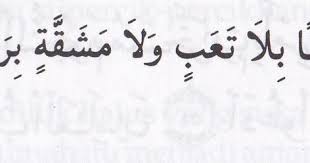 بِلَا تَعَبٍ وَلَا مَشَقَّةٍ